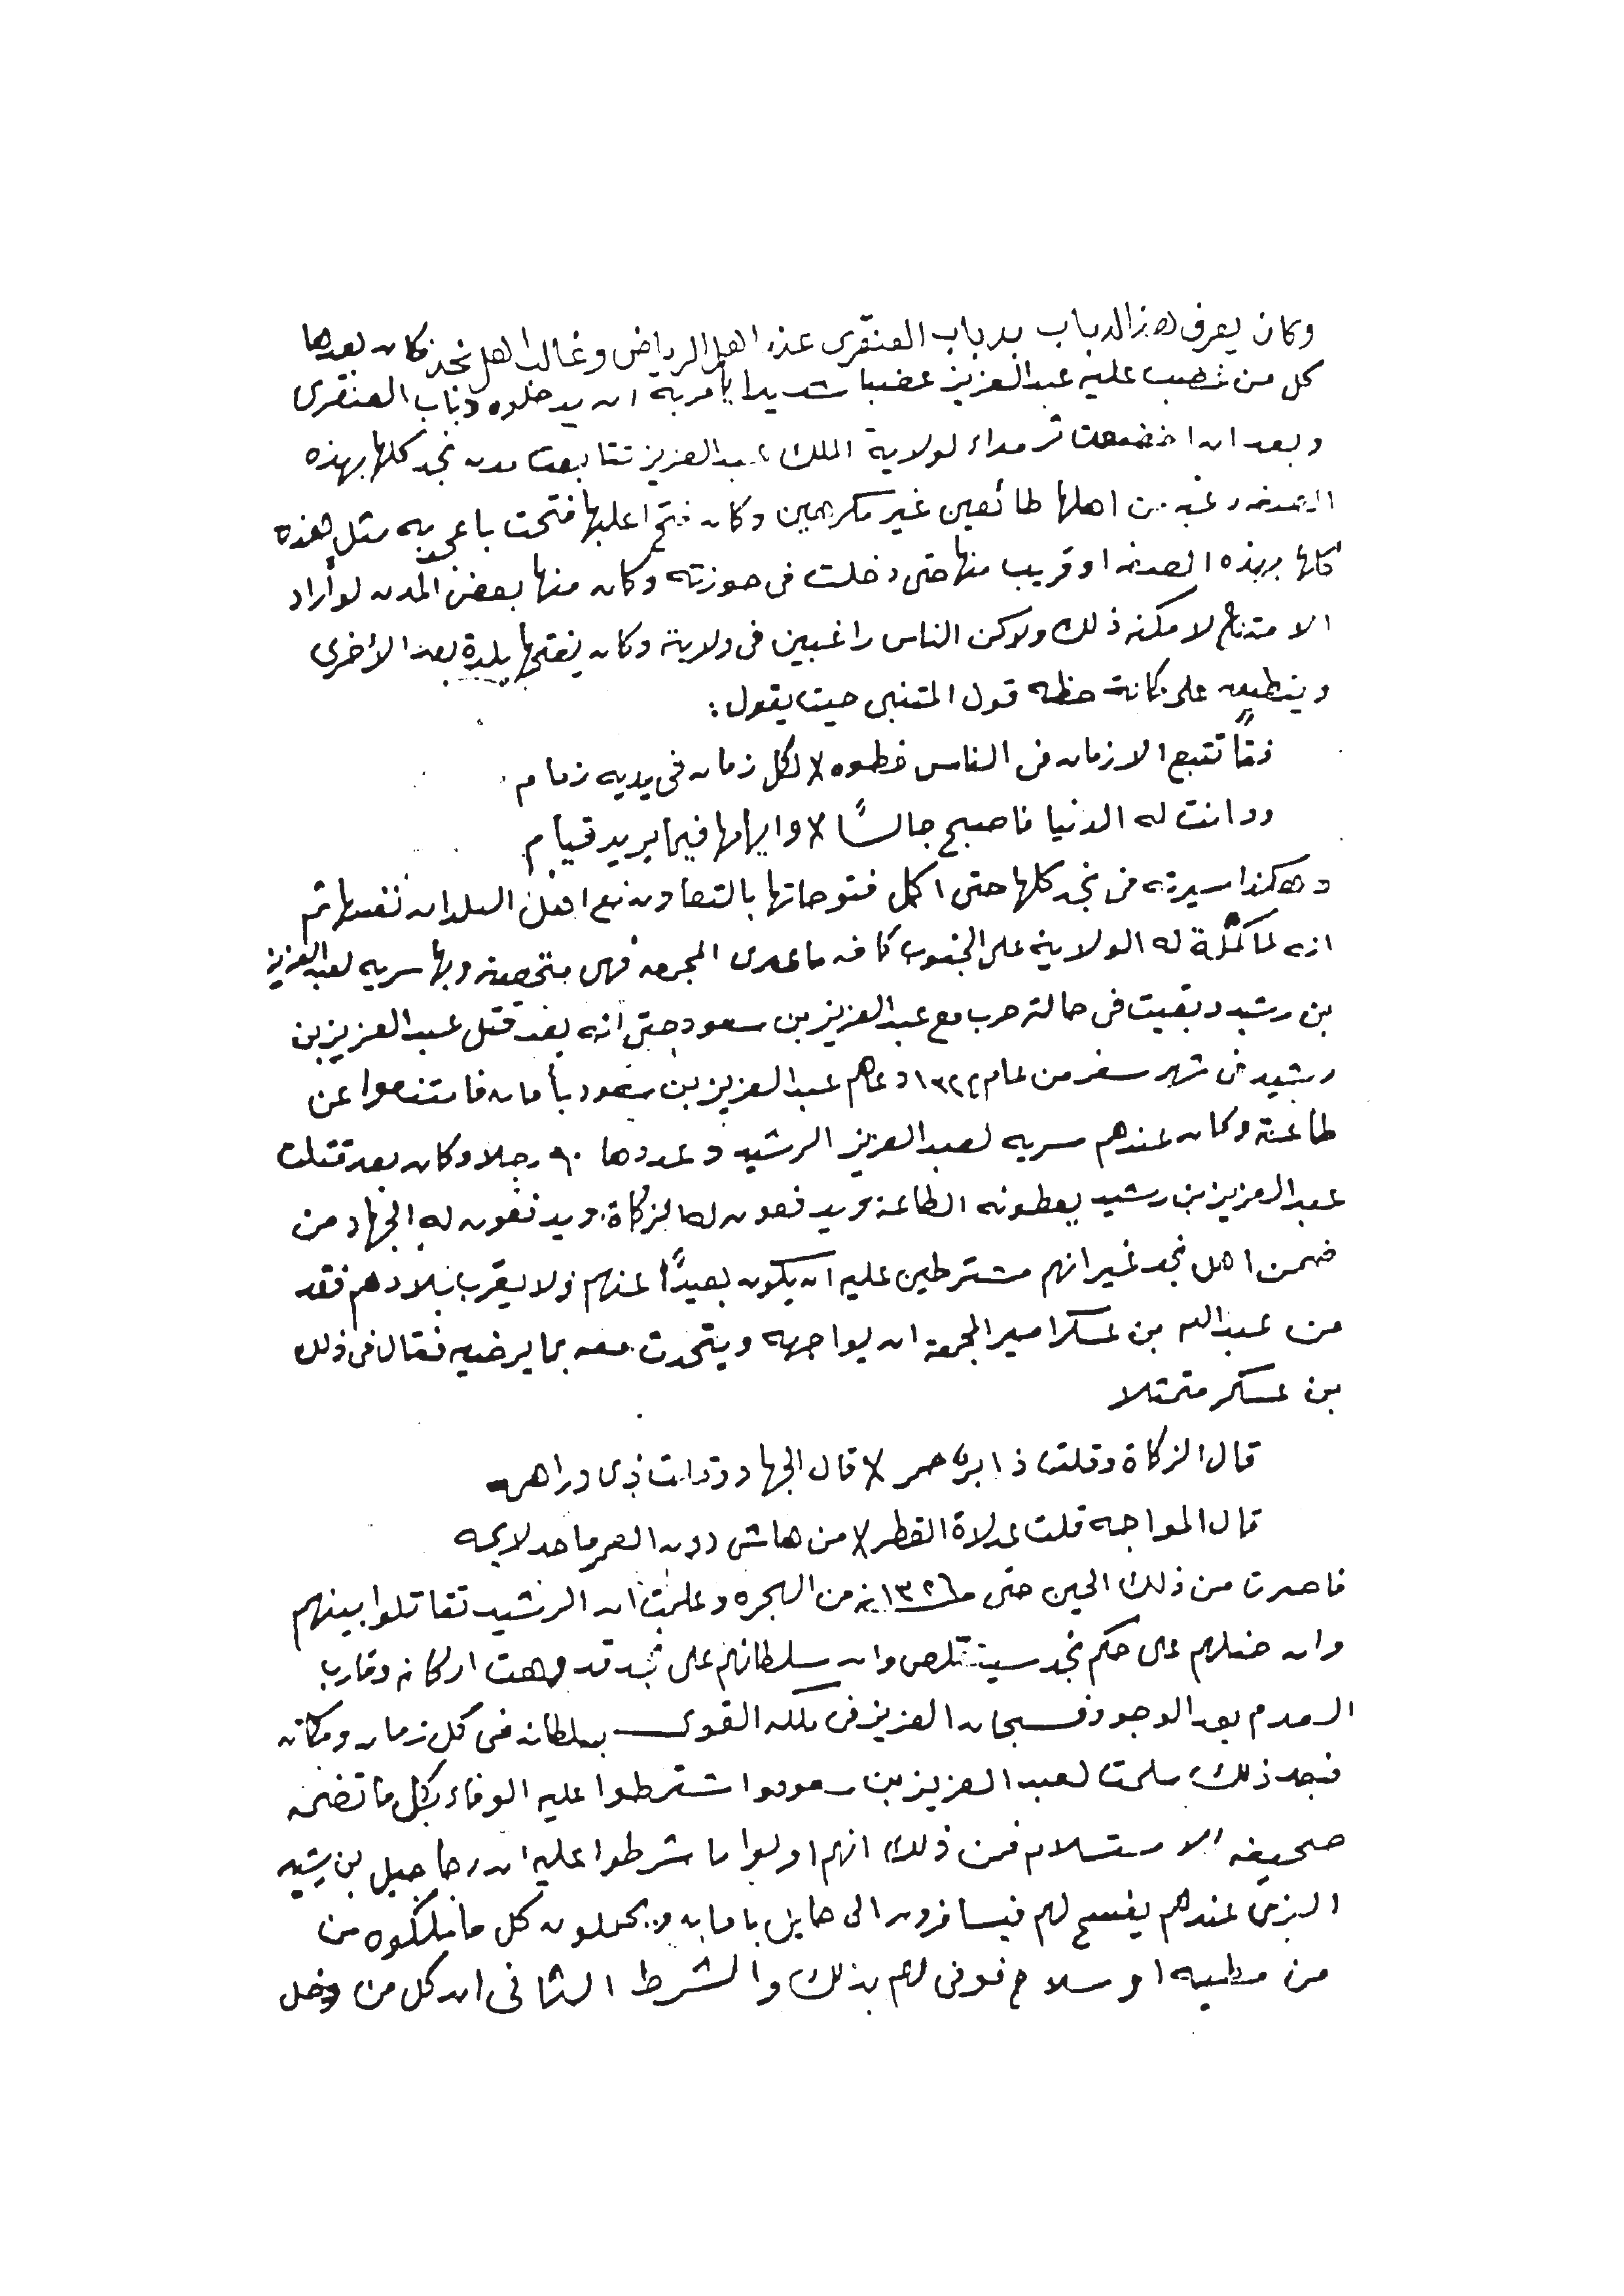 وكان يعرف هذا الدباب بدباب العنقري عند اهل الرياض وغالب اهل نجد فكان بعدها
كل من غضب عليه عبدالعزيز غضبا شديدا يأمر به ان يدخلوه دباب العنقري
وبعد ان اخضعت ثرمداء لولاية الملك عبدالعزيز تتابعت مدن نجد كلها بهذه
الصفه رغبه من اهلها طائعين غير مكرهين وكان فتح اغلبها فتحت باعجوبه مثل هذه
كلها بهذه الصفه او قريب منها حتى دخلت في حوزته وكان منها بعض المدن لو أراد
الامتناع لامكنه ذلك ولاكن الناس راغبين في ولايته وكان يفتحها بلدة بعد الأخرى
وينطبق على مكانة حظه قول المتنبي حيث يقول:
فتاً تتبع الازمان في الناس خطوه // لكل زمان في يديه زمام
ودانت له الدنيا فاصبح جالساً // وايامها فيما يريد قيام
وهكذا سيرته في نجد كلها حتى اكمل فتوحاتها بالتعاون مع اهل البلدان نفسها ثم
انه لما كملة له الولاية على الجنوب كافه ماعدى المجمعه فهي متحصنه وبها سريه لعبدالعزيز
بن رشيد وبقيت في حالة حرب مع عبدالعزيز بن سعود حتى أنه بعد قتل عبدالعزيز بن
رشيد في شهر سفر من عام ١٣٢٤ دعاهم عبدالعزيز بن سعود بأمان فامتنعوا عن
طاعته وكان عندهم سريه لعبدالعزيز الرشيد وعددها ٩٠ رجلا وكان بعد قتلت
عبدالعزيز بن رشيد يعطونه الطاعة ويدفعون له الزكاة ويدفعون له الجهاد من
ضمن اهل نجد غير انهم مشترطين عليه ان يكون بعيداً عنهم ولا يقرب بلادهم فقد
من عبدالله بن عسكر امير المجمعة ان يواجهه ويتحدث معه بما يرضيه فقال في ذلك
بن عسكر متمثلا
قال الزكاة وقلت ذا حصر // قال الجهاد وقلت ذي دراهم
قال المواجه قلت القطر // من هاش دون العمر ماحد لايمه
فاصرت من ذلك الحين حتى ١٣٢٦ من الهجره وعلمت ان الرشيد تقاتلوا بينهم
وان ضلهم على حكم نجد سيتقلص وان سلطانهم على نجد قد وهت اركانه وقارب
العدم بعد الوجود فسبحان العزيز في ملكه القوي بسلطانه في كل زمان ومكان
فبعد ذلك سلمت لعبدالعزيز بن سعود واشترطوا عليه الوفاء بكل ما تضمنه
صحيفة الاستسلام فمن ذلك انهم اول ما شرطوا عليه ان رجاجيل بن رشيد
الذي عندهم يفسح لهم فيسافرون الى حايل بامان ويحملون كل ما ملكوه من
من مطيه او سلاح فوفى لهم بذلك والشرط الثاني ان كل من دخل